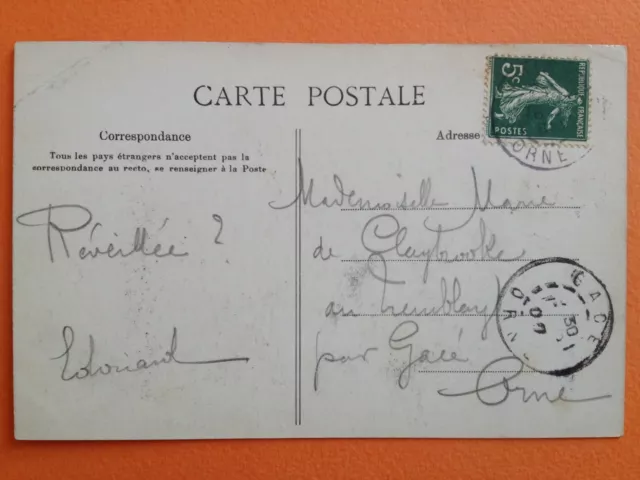 CARTE POSTALE
Correspondance
Tous les pays étrangers n'acceptent pas la
correspondance au recto, se renseigner à la Poste
Adresse
5c
REPUBLIQUE FRANÇAISE
POSTES
ORNE
Réveillée ?
Edouard
Mademoiselle Marie
de Claybrooke
au Tremblay
par Gacé
Orne
GACE
30
09
ORNE